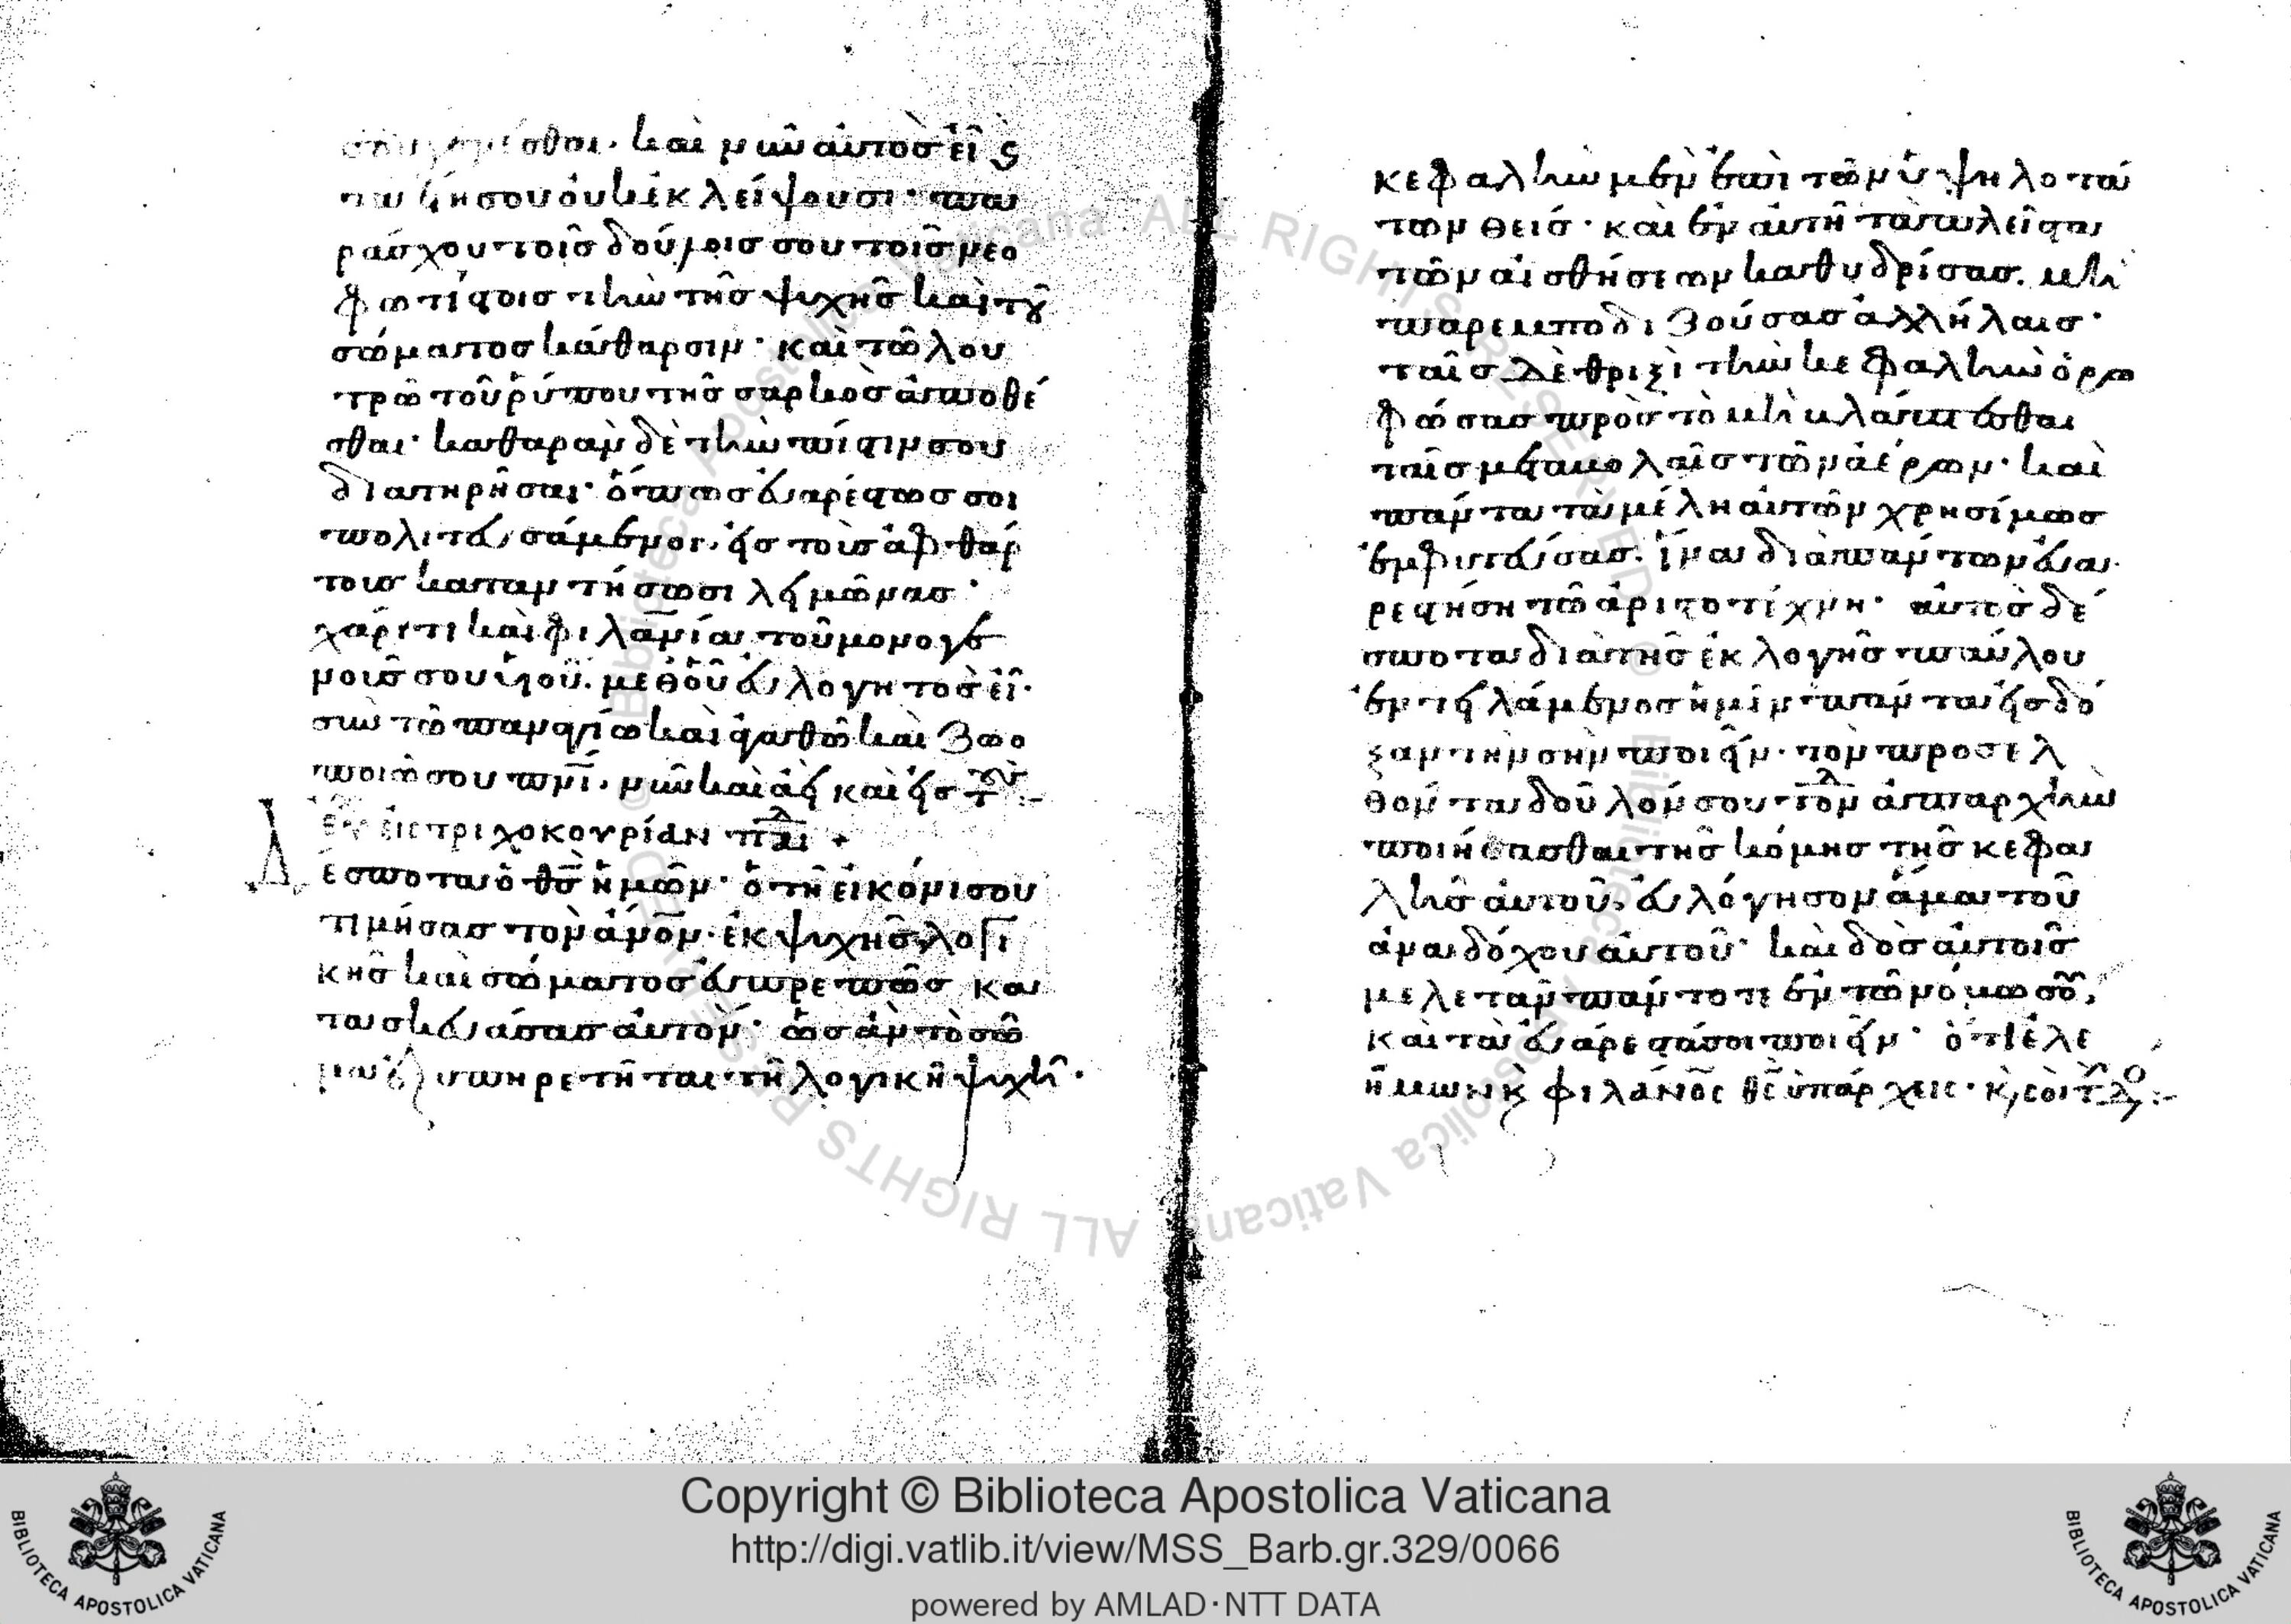 σθαι· καὶ νῦν αὐτὸς εἶ ϛ
τὰ ἔτη σου οὐκ ἐκλείψουσι· πα
ράσχου τοῖς δούλοις σου τοῖς νεο
φωτίστοις τὴν τῆς ψυχῆς καὶ τοῦ
σώματος κάθαρσιν· καὶ τῶ λου
τρῶ τοῦ ῥύπου τῆς σαρκὸς ἀποθέ
σθαι· καθαρὰν δὲ τὴν πίστιν σου
διατηρῆσαι· ὅπως εὐαρέστως σοι
πολιτευσάμενοι, εἰς τοὺς ἀφθάρ
τους καταντήσωσι λειμῶνας·
χάριτι καὶ φιλανίᾳ τοῦ μονογε
νοῦς σου υἱοῦ· μεθ' οὗ εὐλογητὸς εἶ·
σὺν τῶ παναγίω καὶ ἀγαθῶ καὶ ζωο
ποιῶ σου πνι, νῦν καὶ ἀεὶ καὶ εἰς τ
εἰς τριχοκουρίαν παι +
Δέσποτα ὁ θς ἡμῶν· ὁ τῆ εἰκόνι σου
τιμήσας τὸν ἀνον· ἐκ ψυχῆς λογι
κῆς καὶ σώματος εὐπρεποῦς κα
τασκευάσας αὐτόν· ὡς ἂν τὸ σῶ
μα ἐξυπηρετῆται τῆ λογικῆ ψυχῆ·
κεφαλὴν μὲν ἐπὶ τῶν ὑψηλοτά
των θείς· καὶ ἐν αὐτῆ τὰς πλείστας
τῶν αἰσθήσεων καθιδρύσας· μὴ
παρεμποδιζούσας ἀλλήλαις·
ταῖς δὲ θριξὶ τὴν κεφαλὴν ὀρο
φώσας πρὸς τὸ μὴ βλάπτεσθαι
ταῖς μεταβολαῖς τῶν ἀέρων· καὶ
πάντα τὰ μέλη αὐτῶν χρησίμως
ἐμφυτεύσας· ἵνα διὰ πάντων εὐα
ρεστήση τῶ ἀριστοτέχνη· αὐτὸς δέ
σποτα διὰ τῆς ἐκλογῆς παύλου
ἐντειλάμενος ἡμῖν πάντα εἰς δό
ξαν τὴν σὴν ποιεῖν· τὸν προσελ
θόντα δοῦλόν σου τόνδε ἀπαρχὴν
ποιήσασθαι τῆς κόμης τῆς κεφα
λῆς αὐτοῦ, εὐλόγησον ἅμα τοῦ
ἀναδόχου αὐτοῦ· καὶ δὸς αὐτοῖς
μελετᾶν πάντοτε ἐν τῶ νόμω σου,
καὶ τὰ εὐάρεστά σοι ποιεῖν· ὅτι ἐλε
ήμων κ φιλάνος θς ὑπάρχεις· κ, σοὶ τ
Copyright © Biblioteca Apostolica Vaticana
http://digi.vatlib.it/view/MSS_Barb.gr.329/0066
powered by AMLAD·NTT DATA
BIBLIOTECA APOSTOLICA VATICANA
BIBLIOTECA APOSTOLICA VATICANA